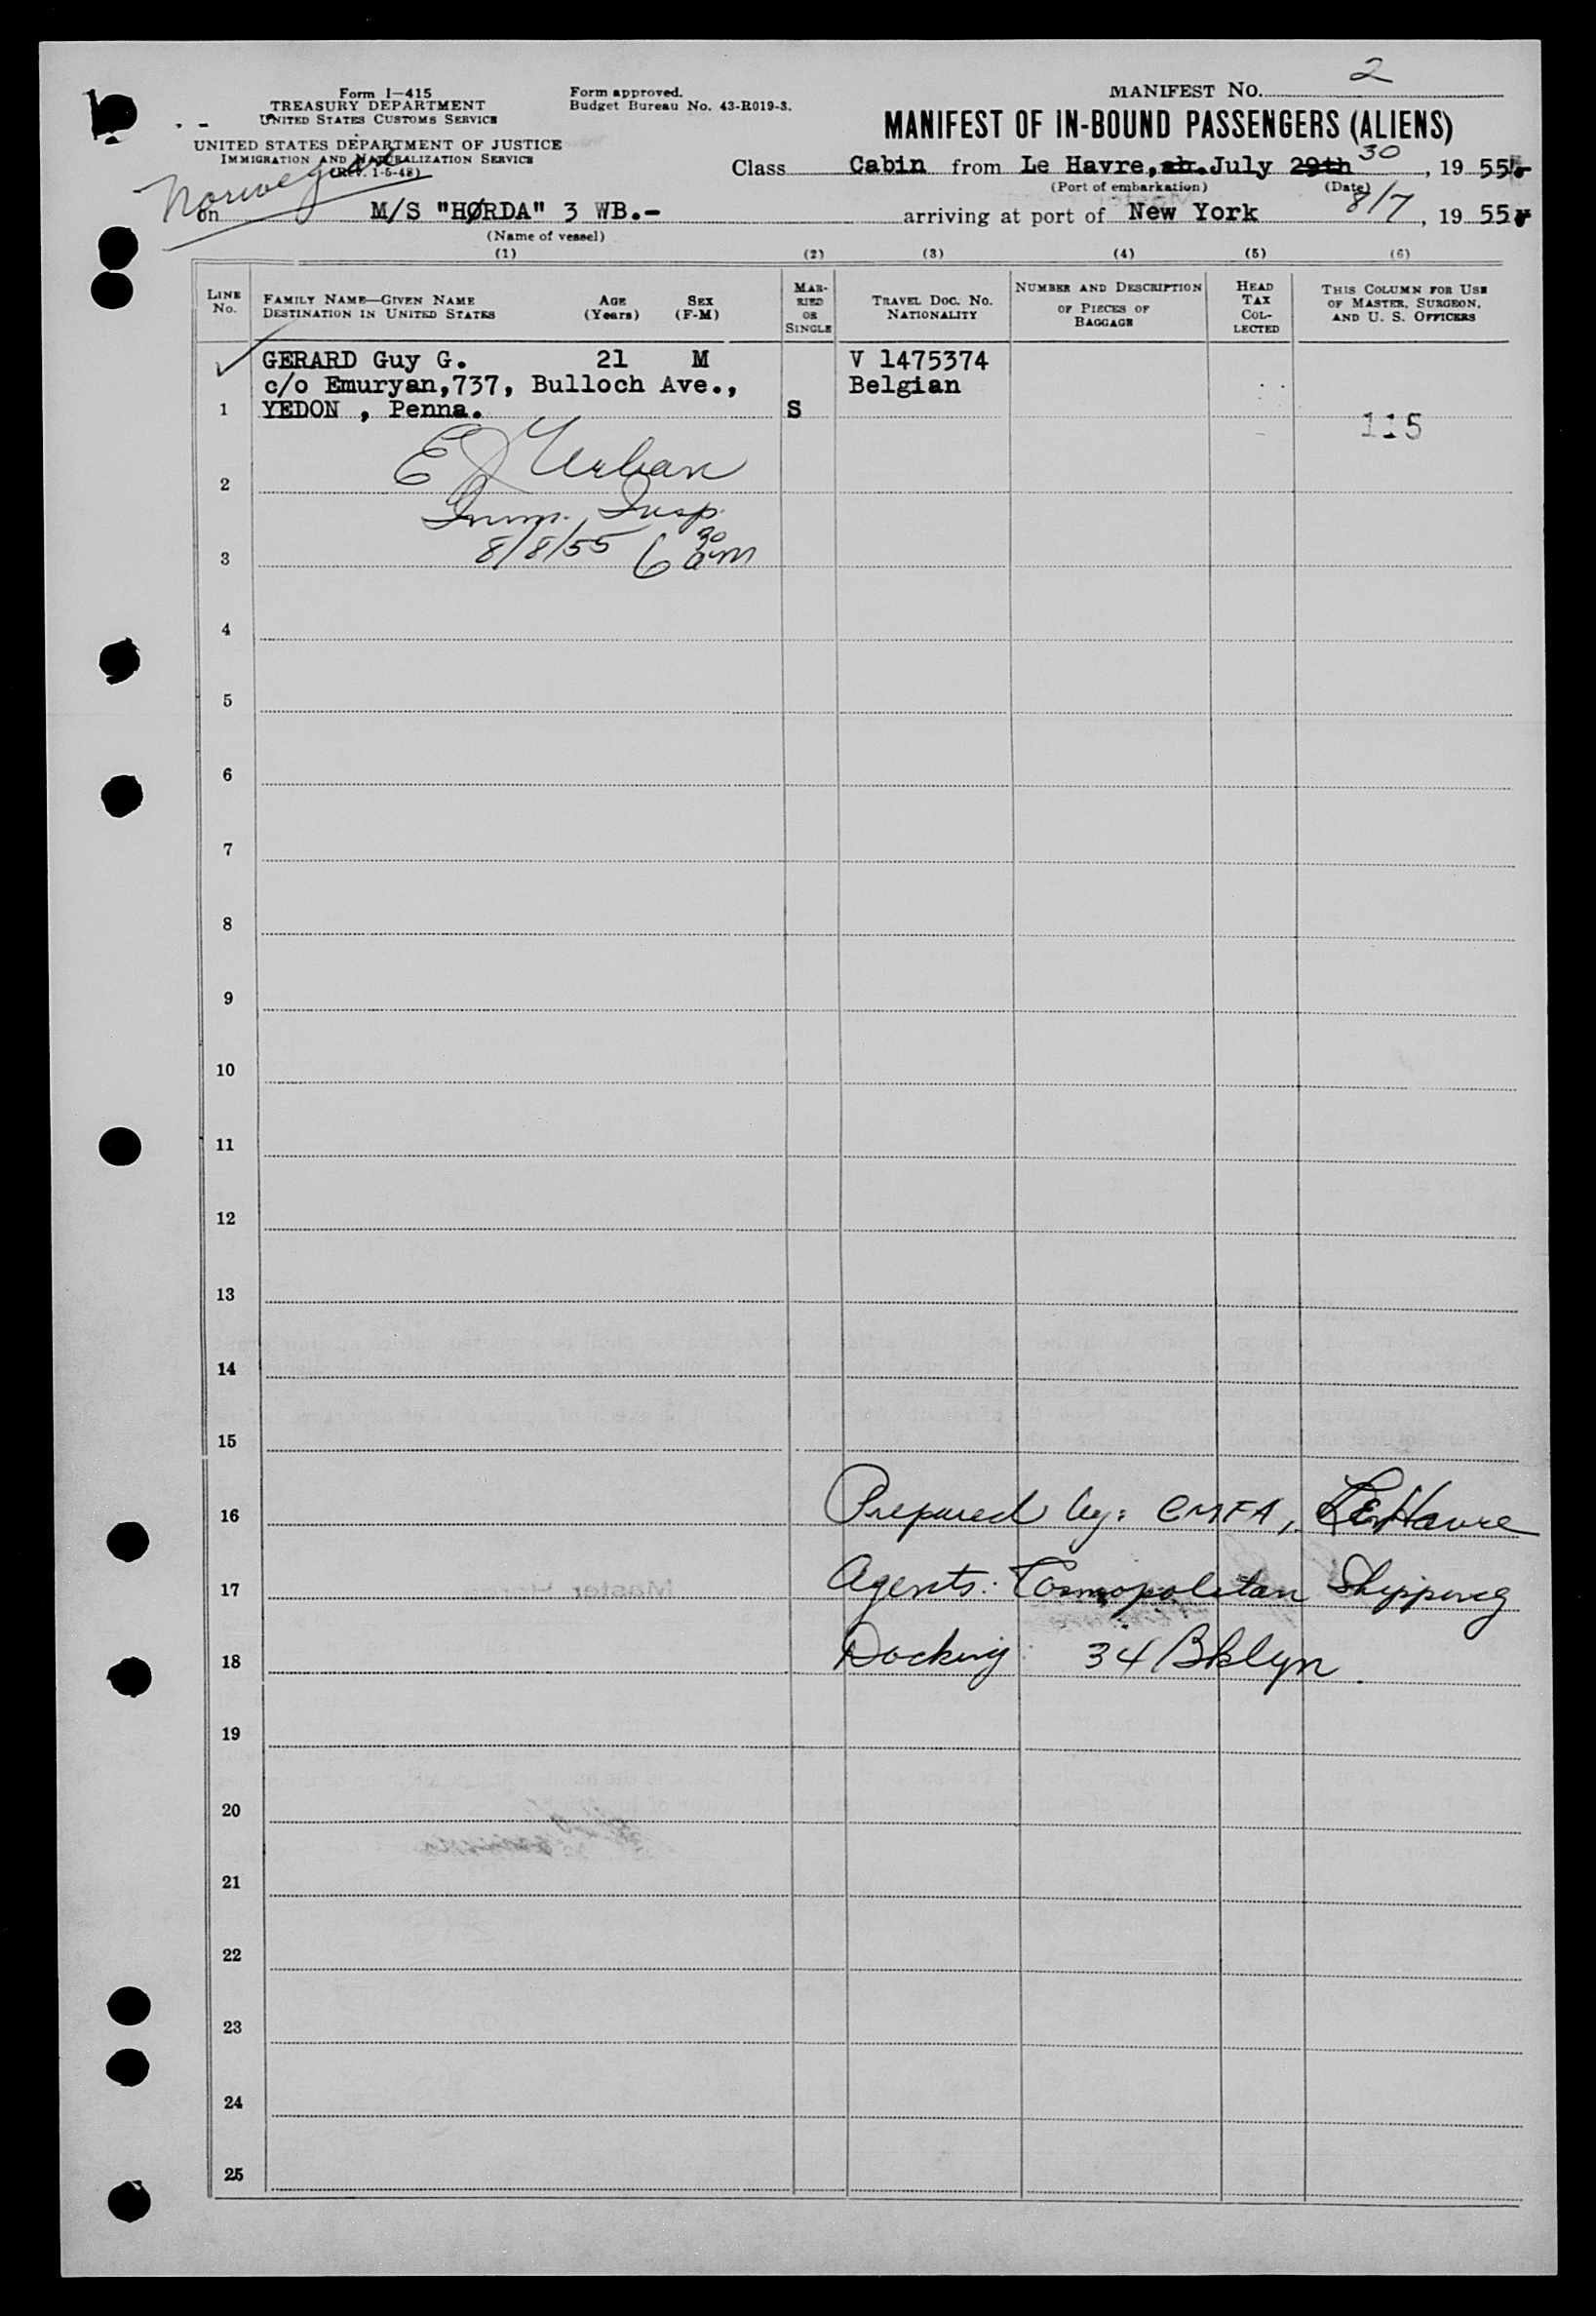 MANIFEST NO. 2
Form I-415
TREASURY DEPARTMENT
UNITED STATES CUSTOMS SERVICE
Form approved.
Budget Bureau No. 43-R019-3.
MANIFEST OF IN-BOUND PASSENGERS (ALIENS)
UNITED STATES DEPARTMENT OF JUSTICE
IMMIGRATION AND NATURALIZATION SERVICE
(Rev. 1-5-48)
Norwegian
Class Cabin from Le Havre, July 29th 30, 19 55
(Port of embarkation) (Date)
on M/S "HØRDA" 3 WB.- arriving at port of New York 8/7, 19 55
(Name of vessel)
(1) (2) (3) (4) (5) (6)
LINE NO.
FAMILY NAME—GIVEN NAME
DESTINATION IN UNITED STATES
AGE (Years)
SEX (F-M)
MARRIED OR SINGLE
TRAVEL DOC. NO.
NATIONALITY
NUMBER AND DESCRIPTION
OF PIECES OF
BAGGAGE
HEAD
TAX
COL-
LECTED
THIS COLUMN FOR USE
OF MASTER, SURGEON,
AND U. S. OFFICERS
GERARD Guy G. 21 M V 1475374
c/o Emuryan,737, Bulloch Ave., Belgian
1 YEDON , Penna. S
115
E J Urban
2
Imm. Insp.
8/8/55 6 30 am
3
4
5
6
7
8
9
10
11
12
13
14
15
16 Prepared by: CMFA, Le Havre
17 Agents: Cosmopolitan Shipping
18 Docking: 34 Bklyn
19
20
21
22
23
24
25